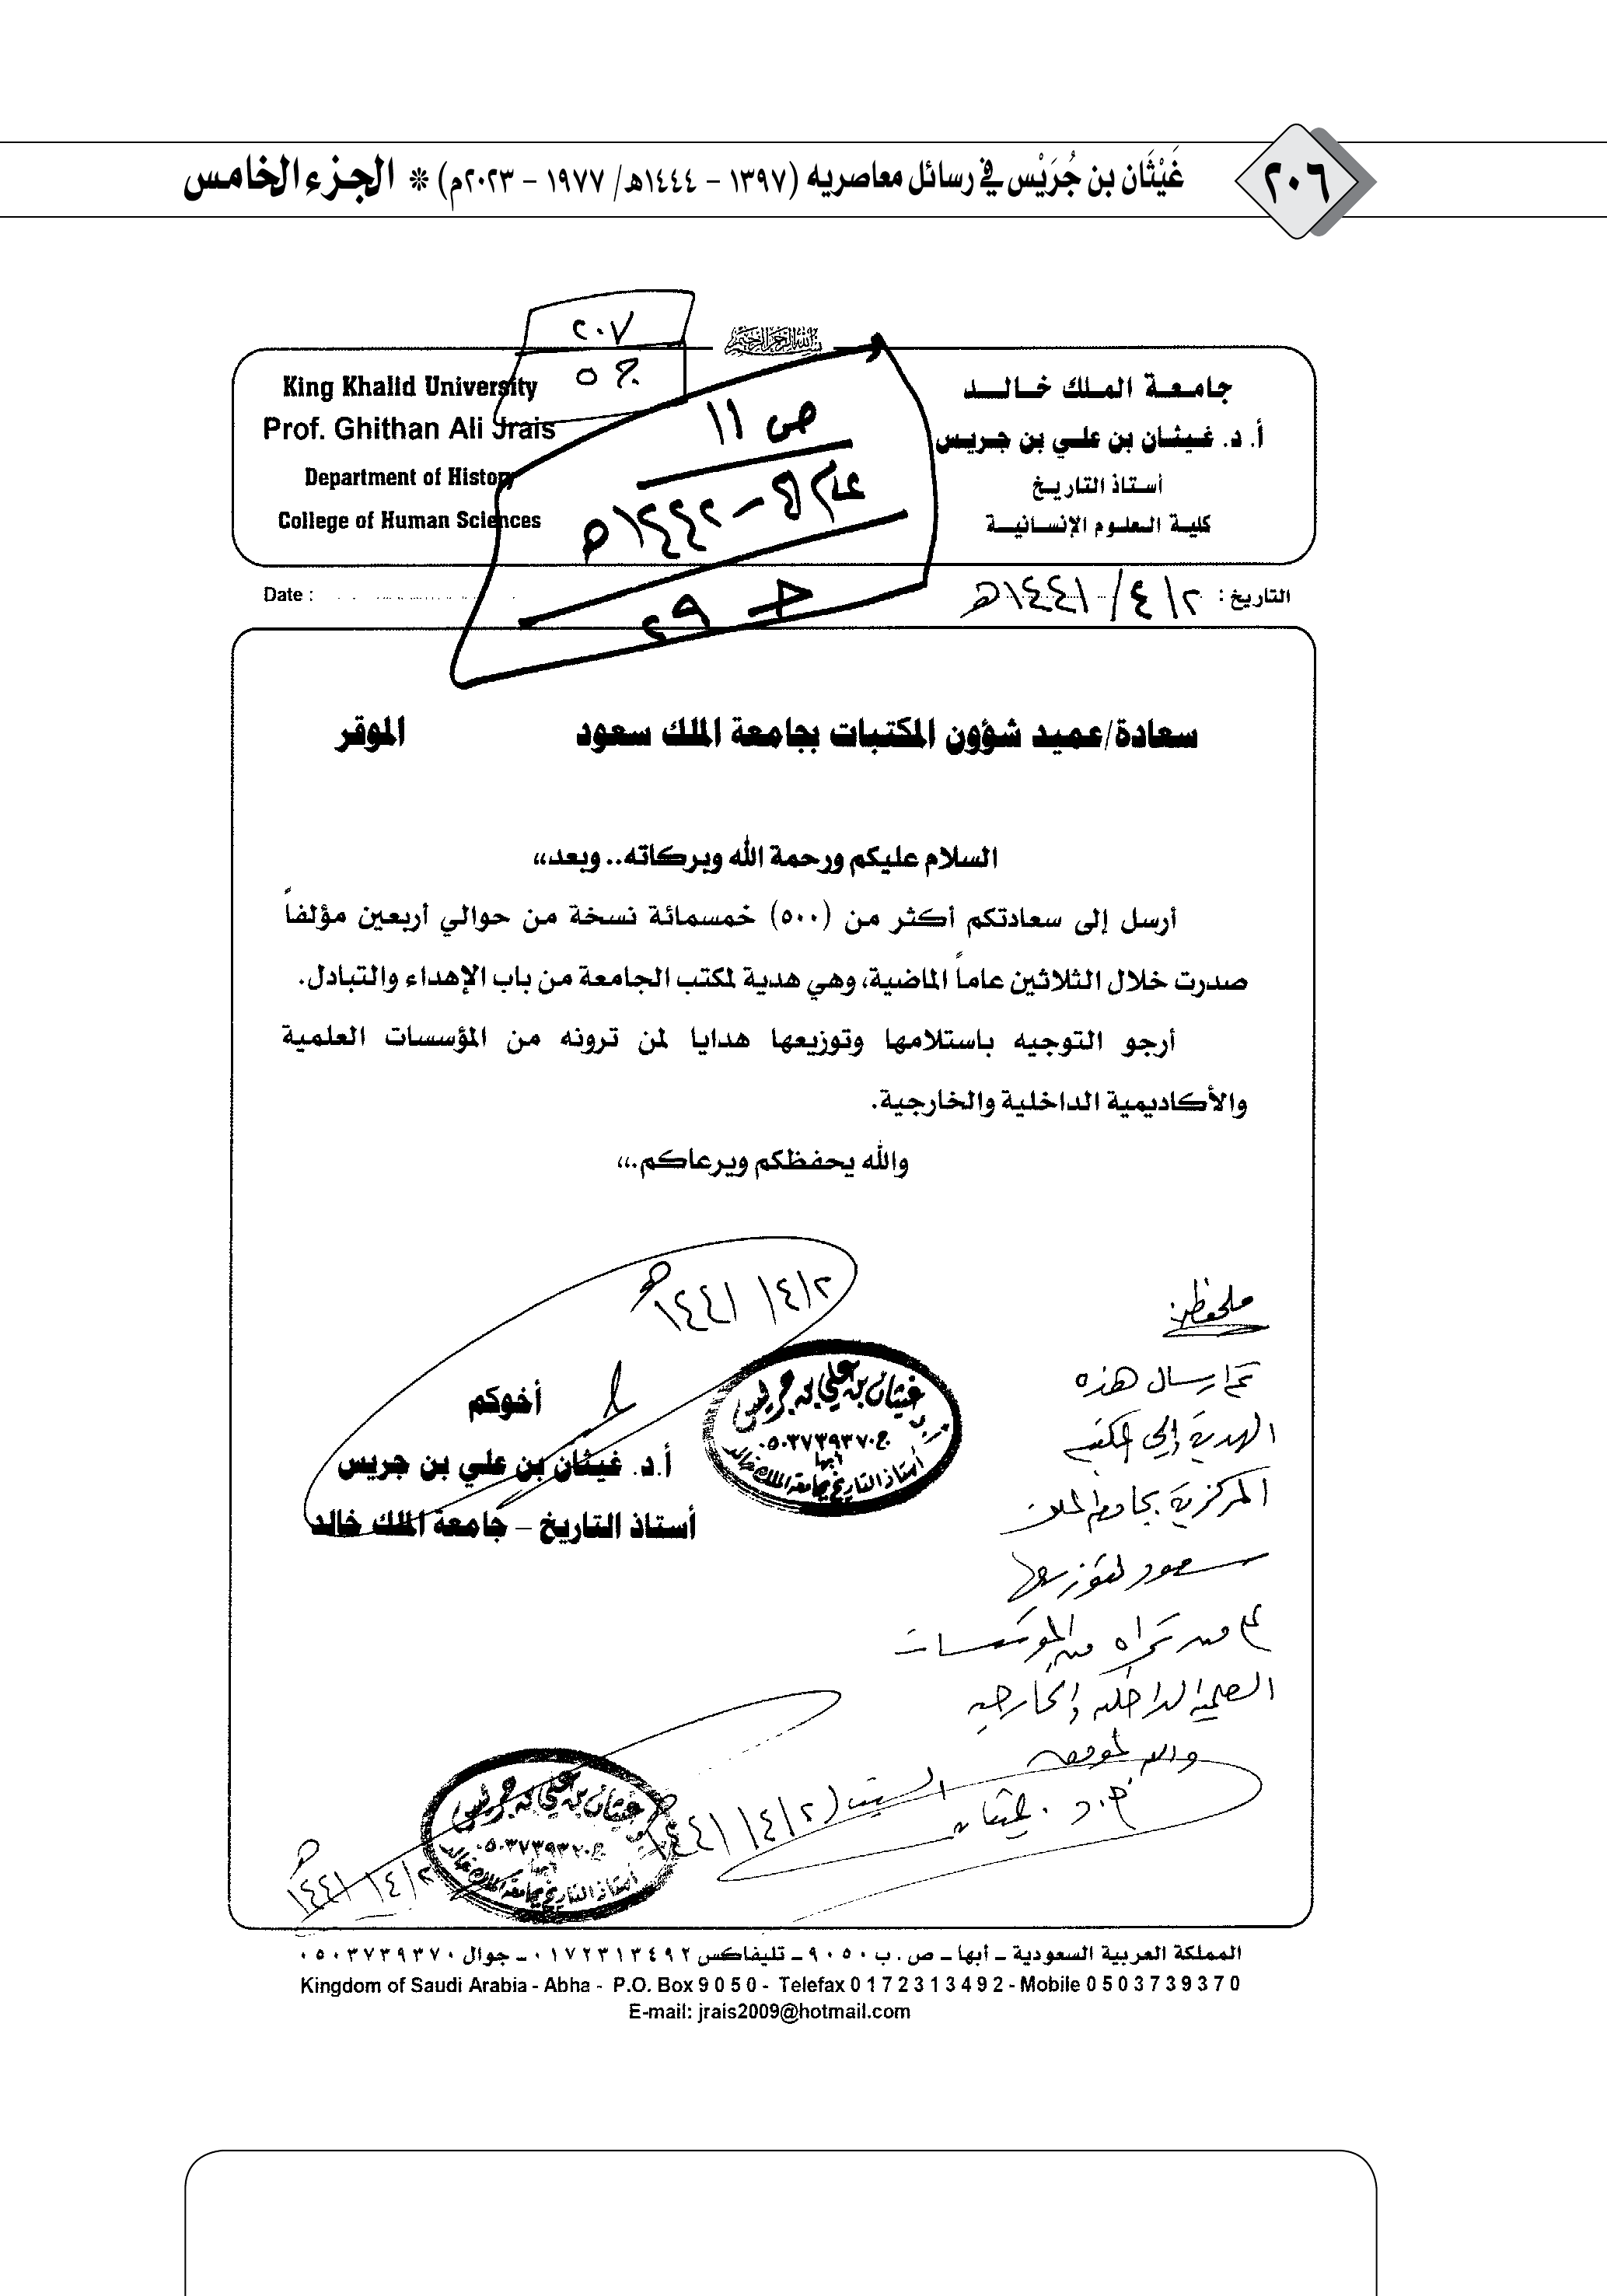 ٢٠٦
غَيْثَان بن جُرَيْس في رسائل معاصريه (١٣٩٧ – ١٤٤٤هـ/ ١٩٧٧ – ٢٠٢٣م) * الجزء الخامس
٢٠٧
ج ٥
جامعة الملك خالد
أ. د. غيثان بن علي بن جريس
أستاذ التاريخ
كلية العلوم الإنسانية
King Khalid University
Prof. Ghithan Ali Jrais
Department of History
College of Human Sciences
ص ١١
١٤٤٢هـ
ج ٢٩
التاريخ : ٢/ ٤/ ١٤٤١هـ
Date :
سعادة/عميد شؤون المكتبات بجامعة الملك سعود الموقر
السلام عليكم ورحمة الله وبركاته.. وبعد،،
أرسل إلى سعادتكم أكثر من (٥٠٠) خمسمائة نسخة من حوالي أربعين مؤلفاً
صدرت خلال الثلاثين عاماً الماضية، وهي هدية لمكتب الجامعة من باب الإهداء والتبادل.
أرجو التوجيه باستلامها وتوزيعها هدايا لمن ترونه من المؤسسات العلمية
والأكاديمية الداخلية والخارجية.
والله يحفظكم ويرعاكم.،،
٢/ ٤/ ١٤٤١هـ
أخوكم
أ.د. غيثان بن علي بن جريس
أستاذ التاريخ – جامعة الملك خالد
أ.د غيثان بن علي بن جريس
ج٠٥٠٣٧٣٩٣٧٠
أبها
أستاذ التاريخ بجامعة الملك خالد
ملحوظة:
تم ارسال هذه
الهدية إلى المكتبة
المركزية بجامعة الملك
سعود لتوزيعها
على من تراه من المؤسسات
العلمية الداخلية والخارجية
والله الموفق
أ.د. غيثان
السبت (٢/ ٤/ ١٤٤١هـ
غيثان بن علي بن جريس
ج٠٥٠٣٧٣٩٣٧٠
أبها
أستاذ التاريخ بجامعة الملك خالد
٢/ ٤/ ١٤٤١هـ
المملكة العربية السعودية – أبها – ص . ب ٩٠٥٠ – تليفاكس ٠١٧٢٣١٣٤٩٢ – جوال ٠٥٠٣٧٣٩٣٧٠
Kingdom of Saudi Arabia - Abha - P.O. Box 9 0 5 0 - Telefax 0 1 7 2 3 1 3 4 9 2 - Mobile 0 5 0 3 7 3 9 3 7 0
E-mail: jrais2009@hotmail.com